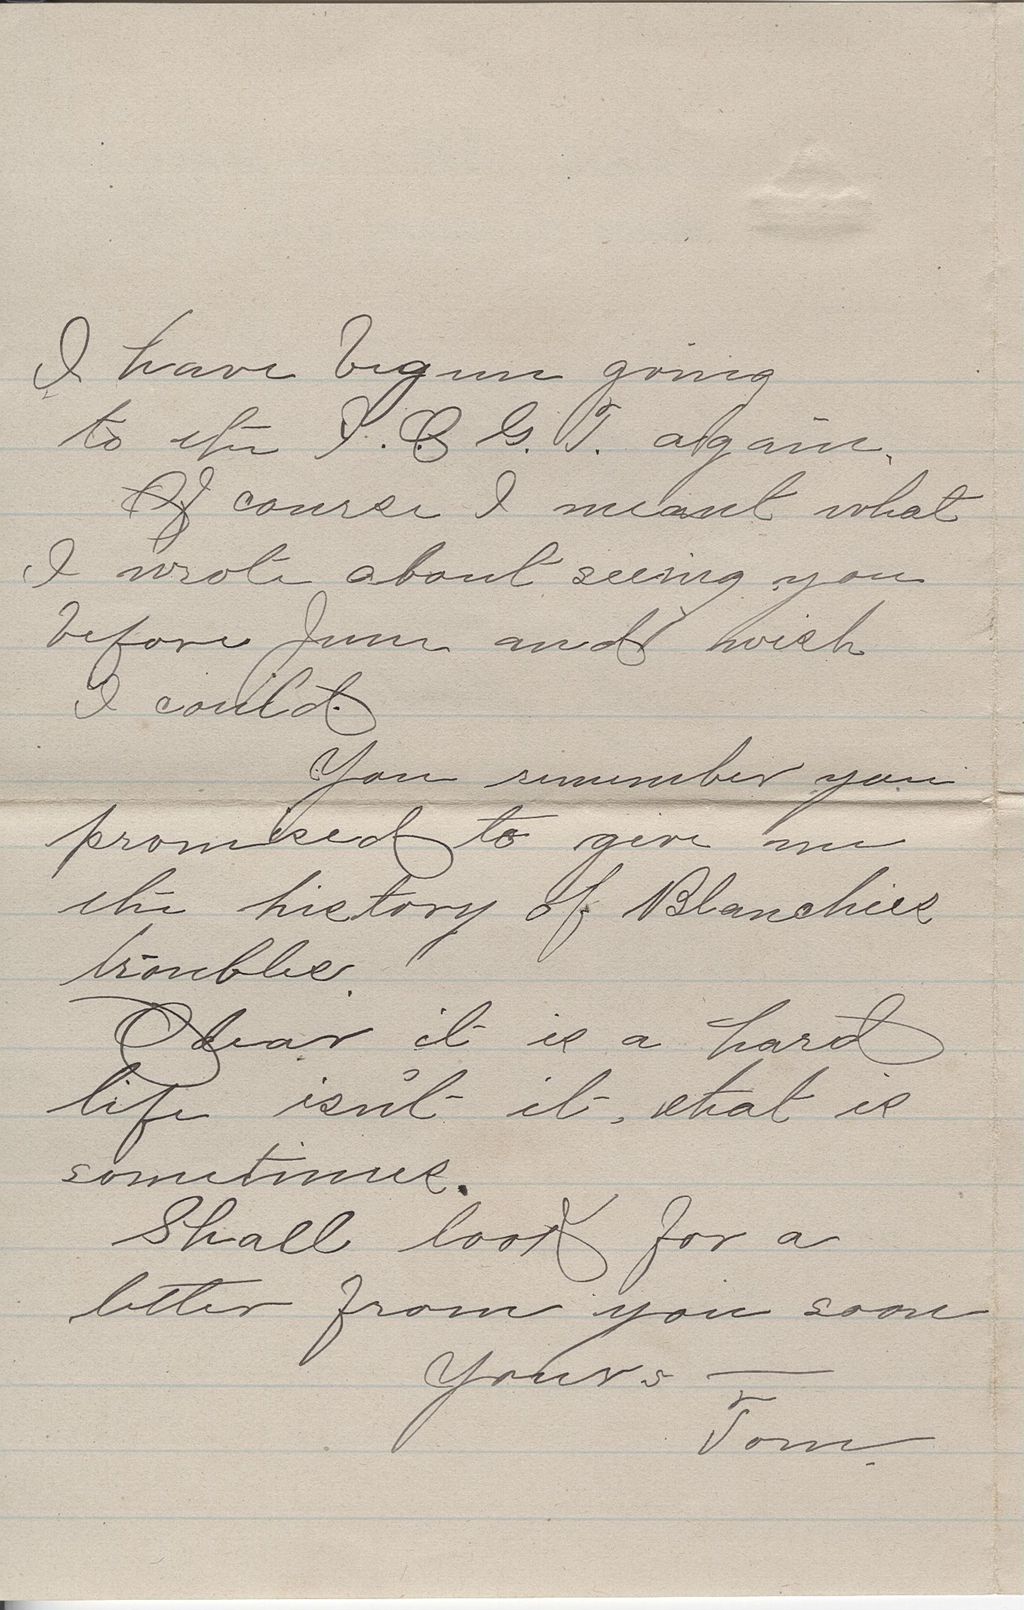 I have begun going
to the I. O. G. T. again.
Of course I meant what
I wrote about seeing you
before June and wish
I could.
You remember you
promised to give me
the history of Blanchies
troubles.
Dear it is a hard
life isn't it, that is
sometimes.
Shall look for a
letter from you soon
Yours —
Tom.